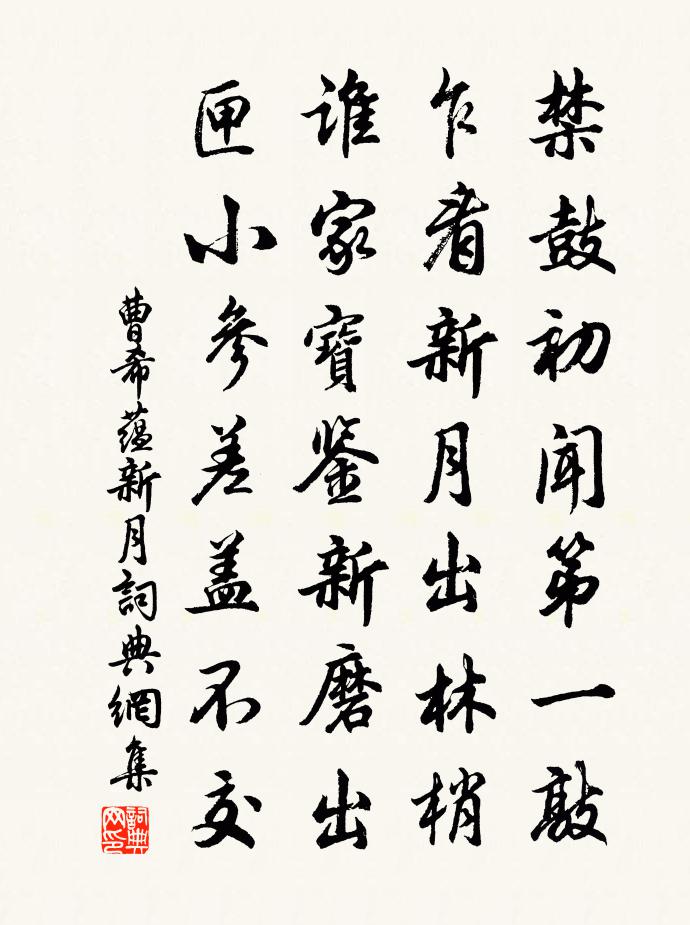 禁鼓初闻第一敲
乍看新月出林梢
谁家寶鉴新磨出
匣小參差盖不交
曹希蕴新月詞典網集
詞典网印